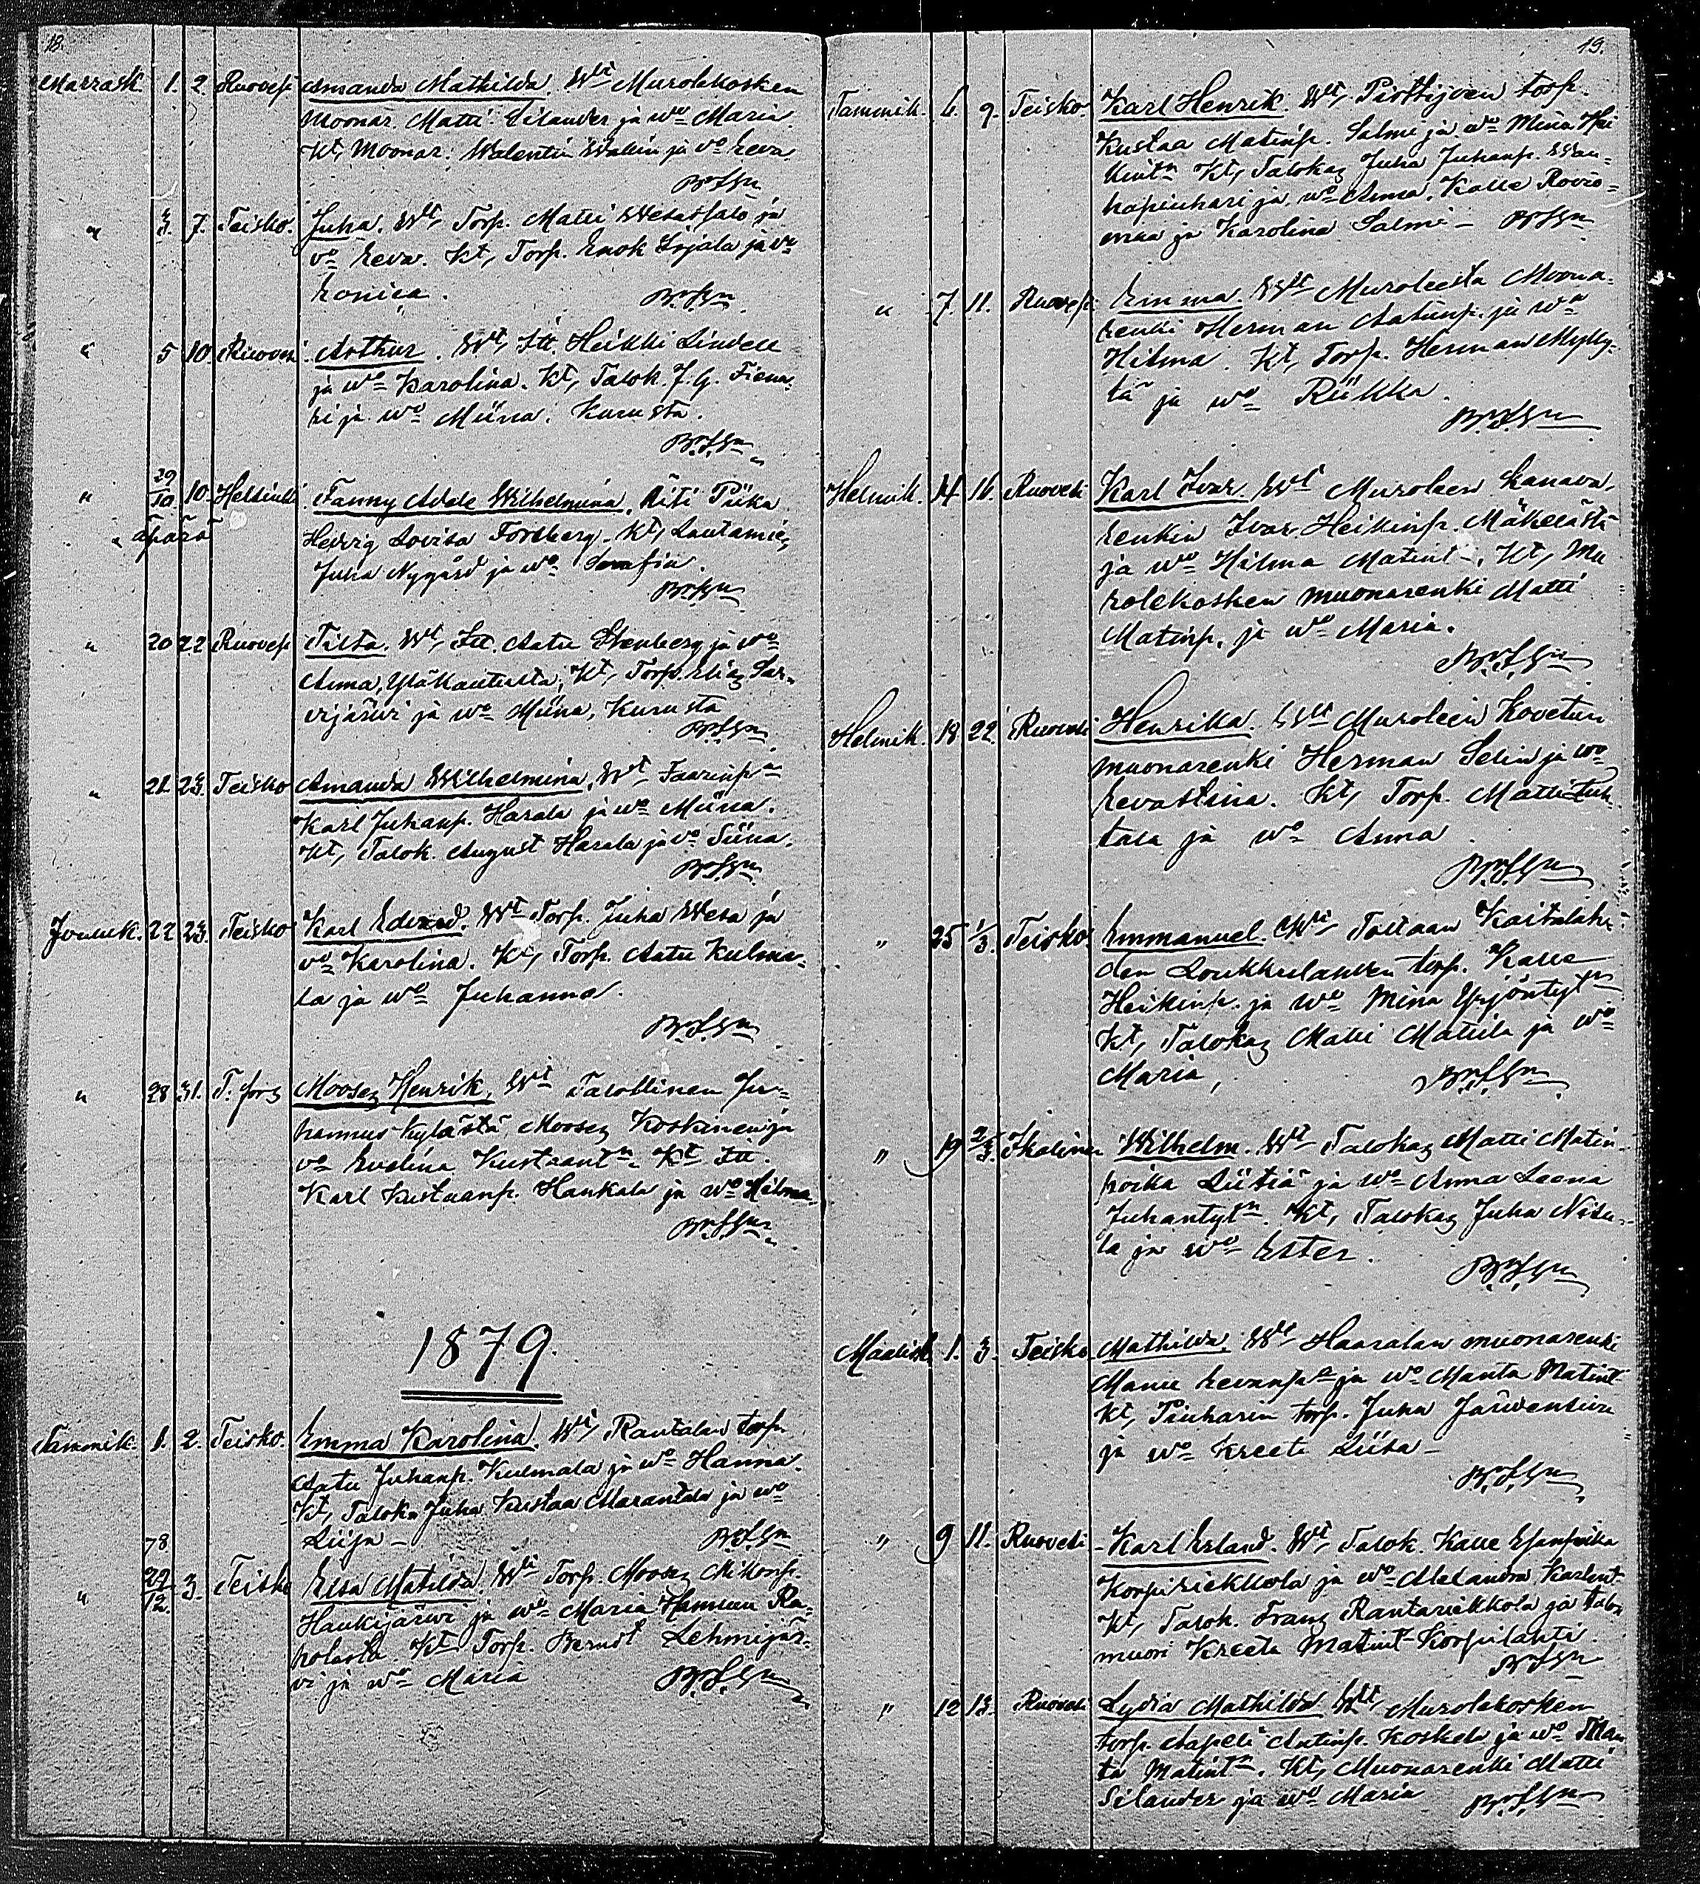 18.
Marrask. 1. 2. Ruovesi Amanda Mathilda. Wt Murolekosken
Moonar. Matti Silander ja wo Maria.
Kt, Moonar. Walentin Wallin ja vo Eeva
" 3. 7. Teisko. Juha. Wt, Torp. Matti Wesassalo ja
vo Eeva. Kt, Torp. Enok Sojala ja vo
" 5 10. Ruovesi. Arthur. Wt, Itt. Heikki Lindell
ja wo Karolina. Kt, Talok. J. G. Fiena
ri ja wo Miina. Kurusta.
" 29/10 10. Helsinki. Fanny Adele Wilhelmina. Äiti Piika
äpärä Hedvig Lovisa Forsberg. Kt, Lautamies
Juha Nygård ja wo Serafia.
" 20 22 Ruovesi Tilta. Wt, Itt. Aatu Stenberg ja vo
Anna, Yläkautusta, Kt, Torp. Elias Sar-
vijärwi ja wo Miina, Kurusta
" 21. 23. Teisko Amanda Wilhelmina. Wt
Karl Juhanp. Harala ja wo Miina.
Kt, Talok. August Harala ja vo Siina.
Jouluk. 22 23. Teisko Karl Edvard. Wt Torp. Juha Wesa ja
vo Karolina. Kt, Torp. Aatu Kulma-
la ja wo Juhanna.
" 28 31. T. fors Mooses Henrik. Wt Talollinen Ju-
hannus kylästä, Mooses Koskinen ja
vo Evelina Kustaant. Kt Itt.
Karl Kustaanp. Haukala ja wo Hilma.
1879.
Tammik. 1. 2. Teisko. Emma Karolina. Wt, Rantalan torp.
Aatu Juhanp. Kulmala ja wo Hanna.
Kt, Talok. Juha Kustaa Marantala ja wo
Liisa
" 78 29/12. 3. Teisko Elsa Matilda. Wt Torp. Mooses Mikonp.
Haukijärwi ja wo Maria
Kt Torp. Berndt Lehmijär-
vi ja wo Maria
19.
Tammik. 6. 9. Teisko. Karl Henrik. Wt, torp.
Kustaa Matinp. Salmi ja wo Miina Hei
kint. Kt, Talokas Juha Juhanp. Wan-
hapiuhari ja wo Anna. Kalle Rovio-
maa ja Karolina Salmi
" 7. 11. Ruovesi Emma. Wt Muroleesta Moona-
renki Herman Aatunp. ja wo
Hilma. Kt, Torp. Herman Mylly-
lä ja wo Riikka.
Helmik. 14. 16. Ruovesi Karl Ivar. Wt Muroleen kanava,
renkin Ivar Heikinp. Mäkelästä
ja wo Hilma Matint. Kt, Mu
rolekosken muonarenki Matti
Matinp. ja wo Maria.
Helmik. 18 22. Ruovesi Henrika. Wt Muroleen
muonarenki Herman Selin ja wo
Eevastina. Kt, Torp. Matti Juh
tala ja wo Anna
" 25 1/3. Teisko. Emmanuel. Wt,
torp. Kalle
Heikinp. ja wo Miina Yrjöntyt
Kt, Talokas Matti Mattila ja wo
Maria,
" 19 2/3. Ikalinen Wilhelm. Wt Talokas Matti Matin-
poika Liitiä ja wo Anna Leena
Juhantyt. Kt, Talokas Juha Nisu-
la ja wo Ester.
Maalisk. 1. 3. Teisko Mathilda. Wt Haaralan muonarenki
Manu ja wo Manta Matint
Kt, Piuharin torp. Juha Järwensivu
ja wo Kreeta Liisa
" 9 11. Ruovesi Karl Erland. Wt, Talok. Kalle
ja wo Aleksandra Karlint
Kt, Talok. Frans Rantariekkola ja talon
muori Kreeta Matint Korpilahti.
" 12 13. Ruovesi Lydia Mathilda Wt, Murolekosken
torp. Aapeli Antinp. Koskela ja wo Man
ta Matint. Kt, Muonarenki Matti
Silander ja wo Maria